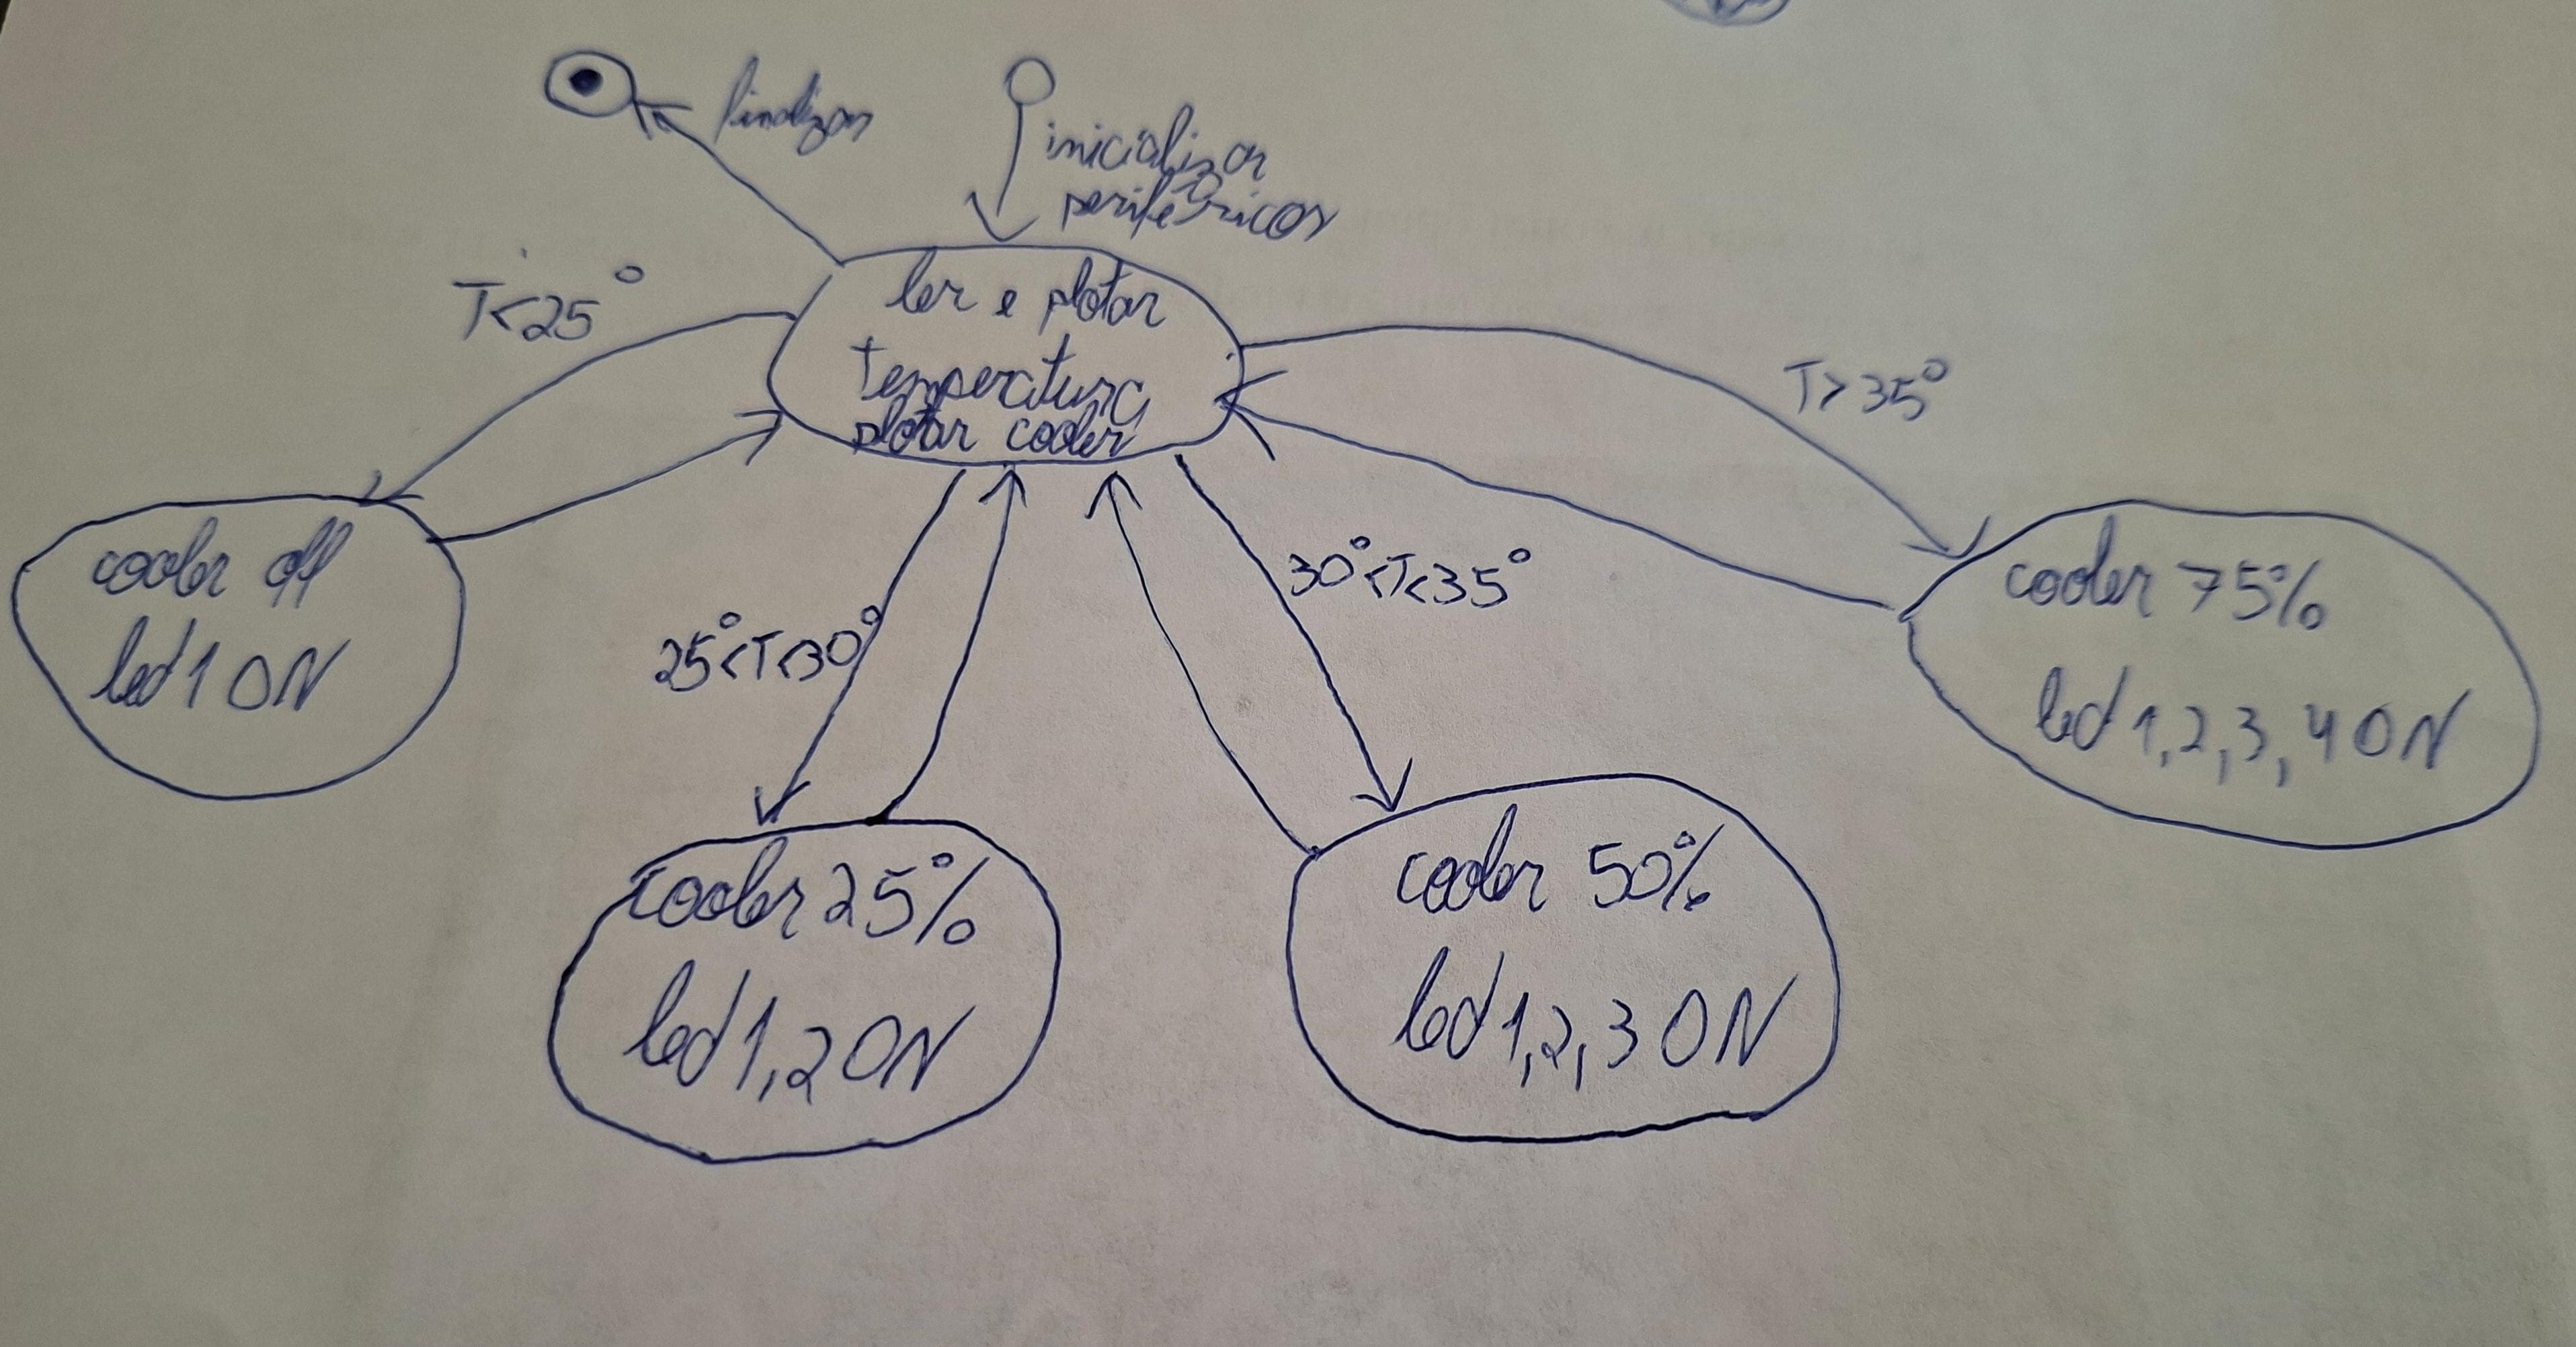 finalizar
inicializar
periféricos
T<25°
ler e plotar
temperatura
plotar cooler
T>35°
cooler off
led 1 ON
25°<T<30°
30°<T<35°
cooler 75%
led 1,2,3,4 ON
cooler 25%
led 1,2 ON
cooler 50%
led 1,2,3 ON